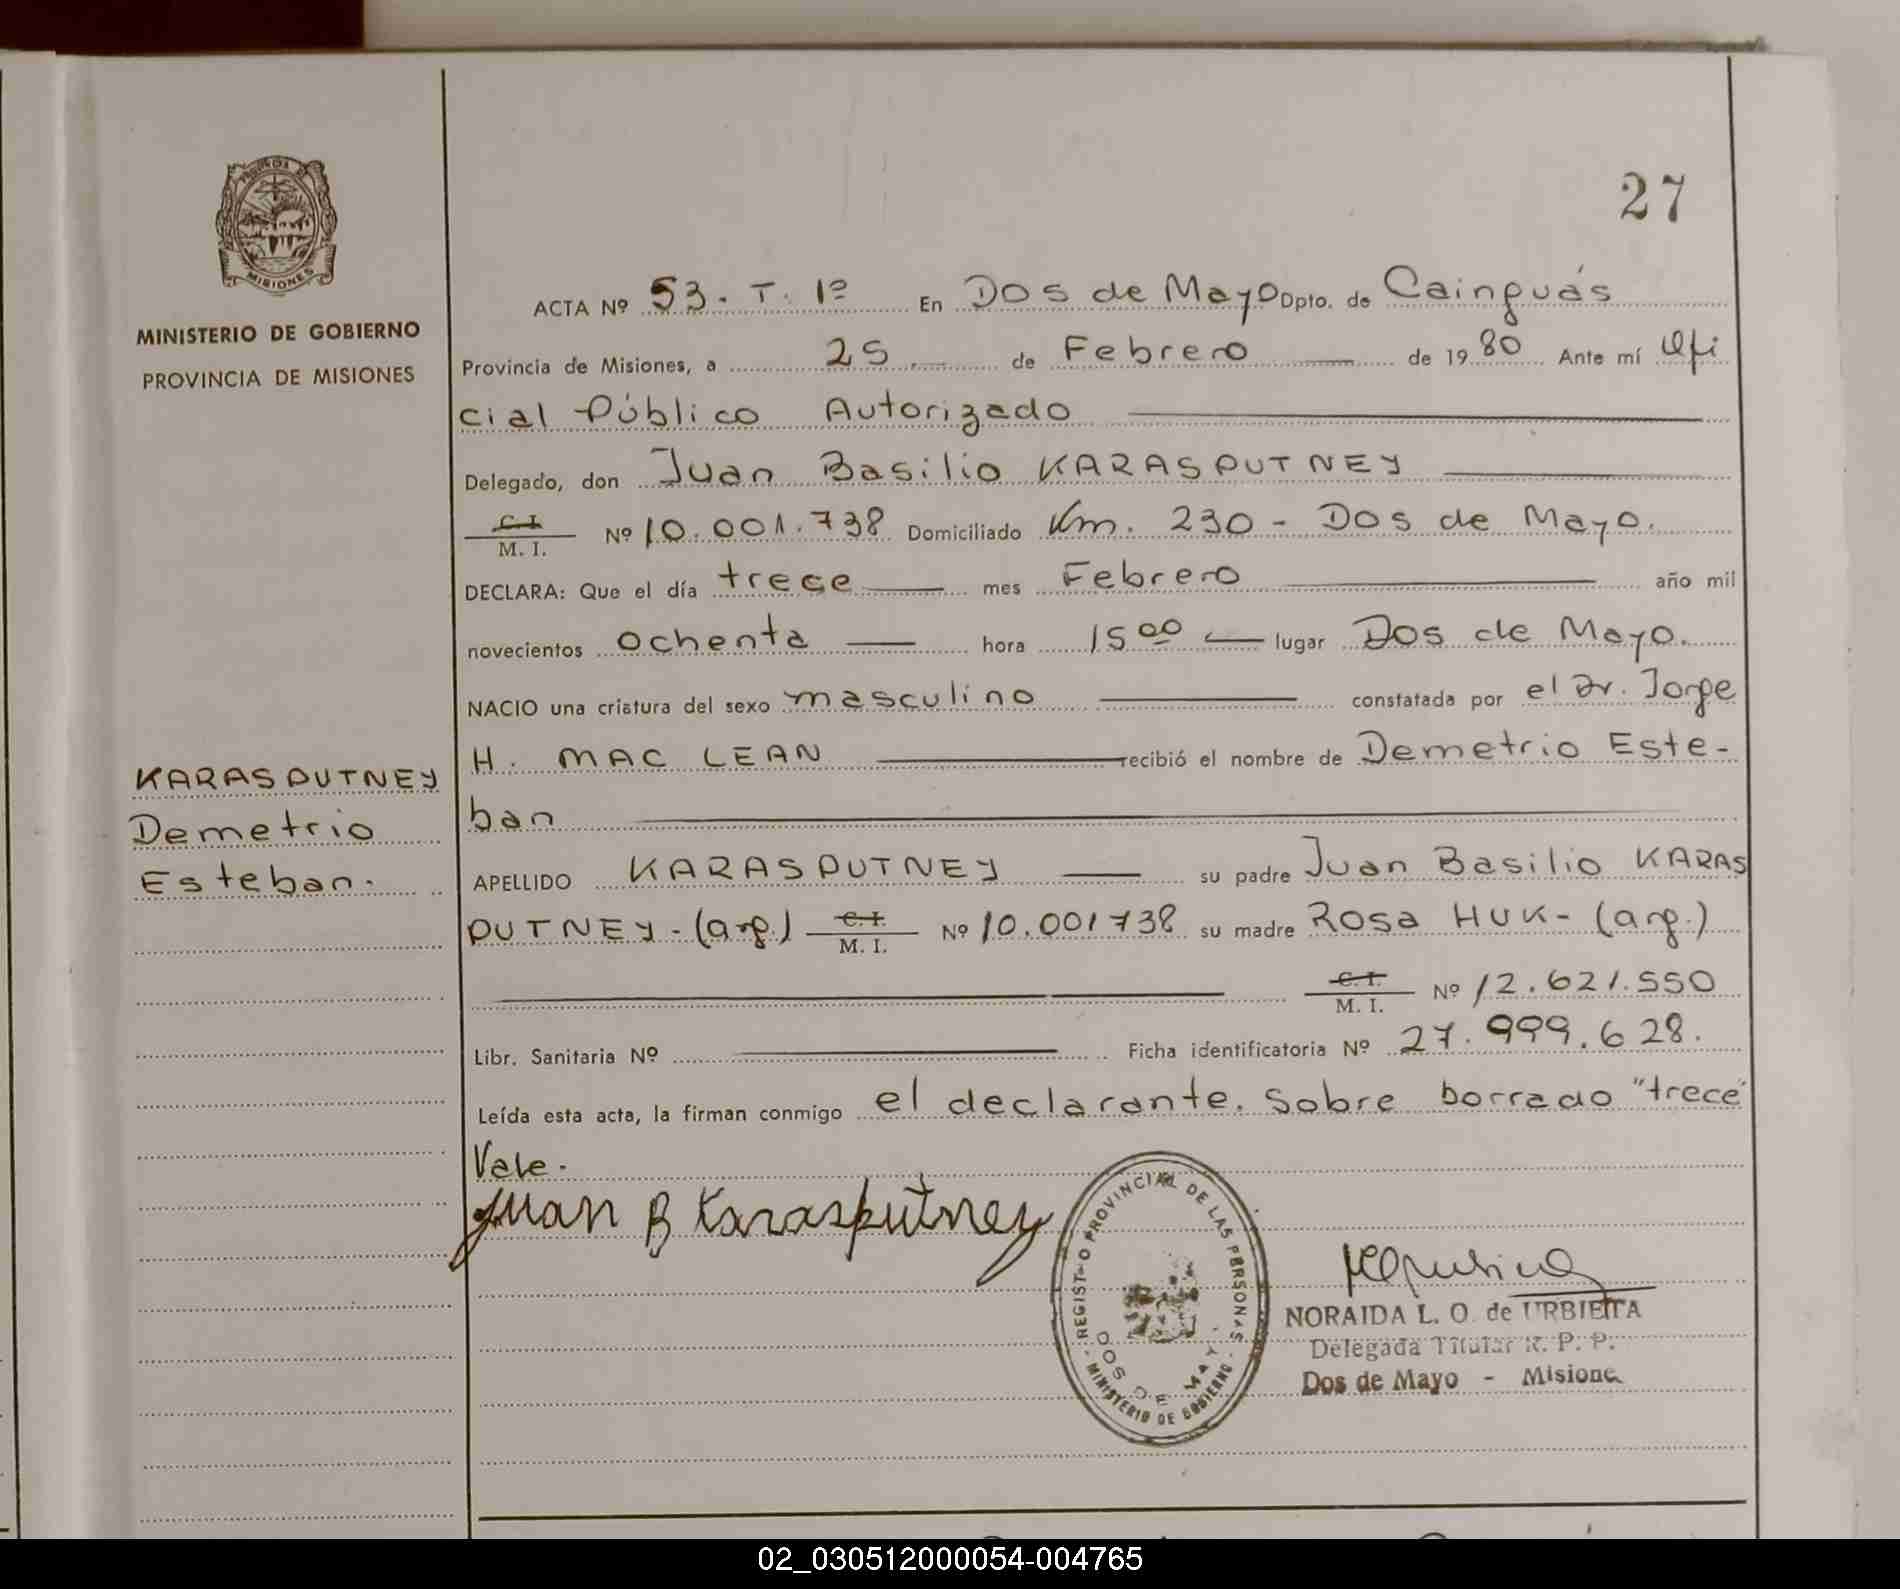 27
PROVINCIA DE
MISIONES
MINISTERIO DE GOBIERNO
PROVINCIA DE MISIONES
ACTA Nº 53. T. 1º En Dos de Mayo Dpto. de Cainguás
Provincia de Misiones, a 25 de Febrero de 1980 Ante mí Ofi
cial Público Autorizado
Delegado, don Juan Basilio KARASPUTNEY
C.I. M. I. Nº 10.001.738 Domiciliado Km. 230 - Dos de Mayo.
DECLARA: Que el día trece mes Febrero año mil
novecientos ochenta hora 15 00 lugar Dos de Mayo.
NACIO una criatura del sexo masculino constatada por el Dr. Jorge
H. MAC LEAN recibió el nombre de Demetrio Este-
ban
KARASPUTNEY
Demetrio
Esteban.
APELLIDO KARASPUTNEY su padre Juan Basilio KARAS
PUTNEY - (arg.) C.I. M. I. Nº 10.001738 su madre Rosa HUK - (arg.)
C.I. M. I. Nº 12.621.550
Libr. Sanitaria Nº Ficha identificatoria Nº 27.999.628.
Leída esta acta, la firman conmigo el declarante. Sobre borrado "trece"
Vale.
Juan B Karasputney
REGISTRO PROVINCIAL DE LAS PERSONAS
DOS DE MAYO
MINISTERIO DE GOBIERNO
NORAIDA L. O. de URBIETA
Delegada Titular R. P. P.
Dos de Mayo - Misione
02_030512000054-004765